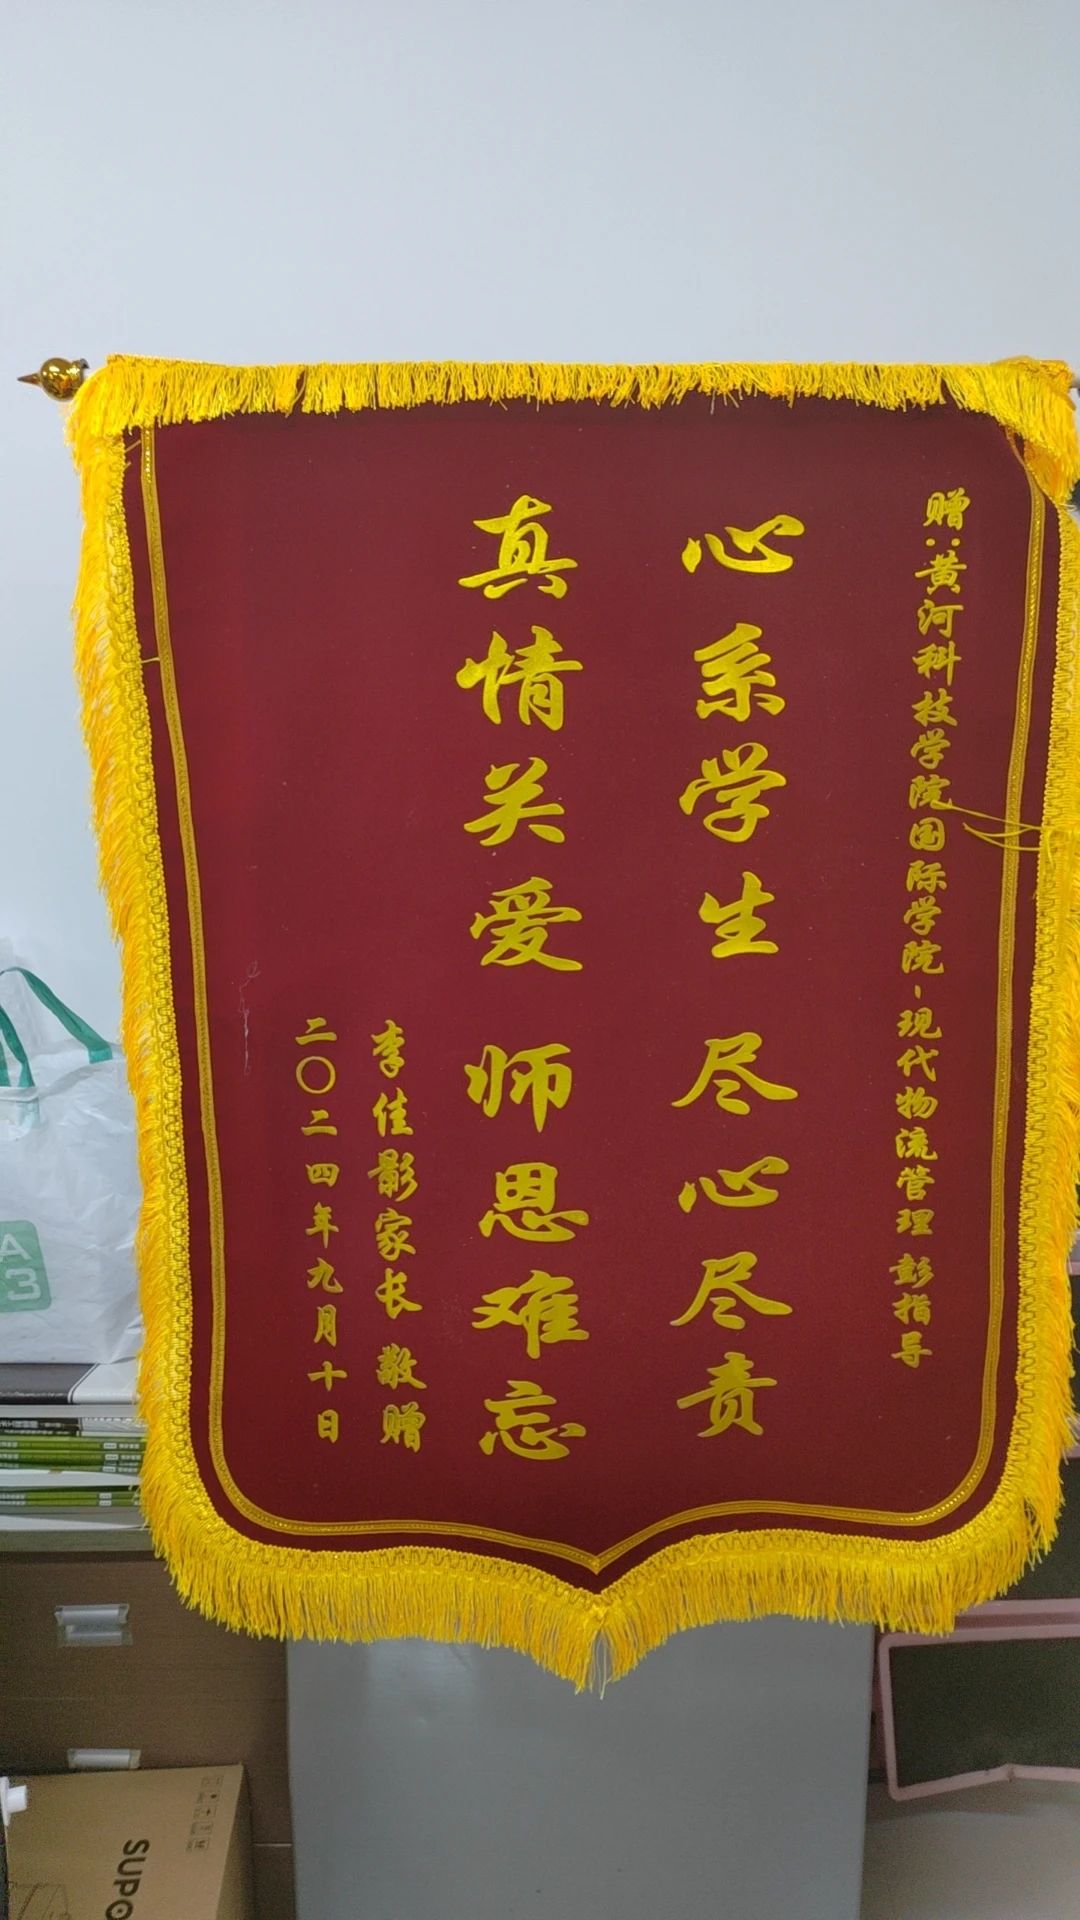 赠:黄河科技学院国际学院-现代物流管理 彭指导
心系学生 尽心尽责
真情关爱 师恩难忘
李佳影家长 敬赠
二〇二四年九月十日
A
3
SUPO